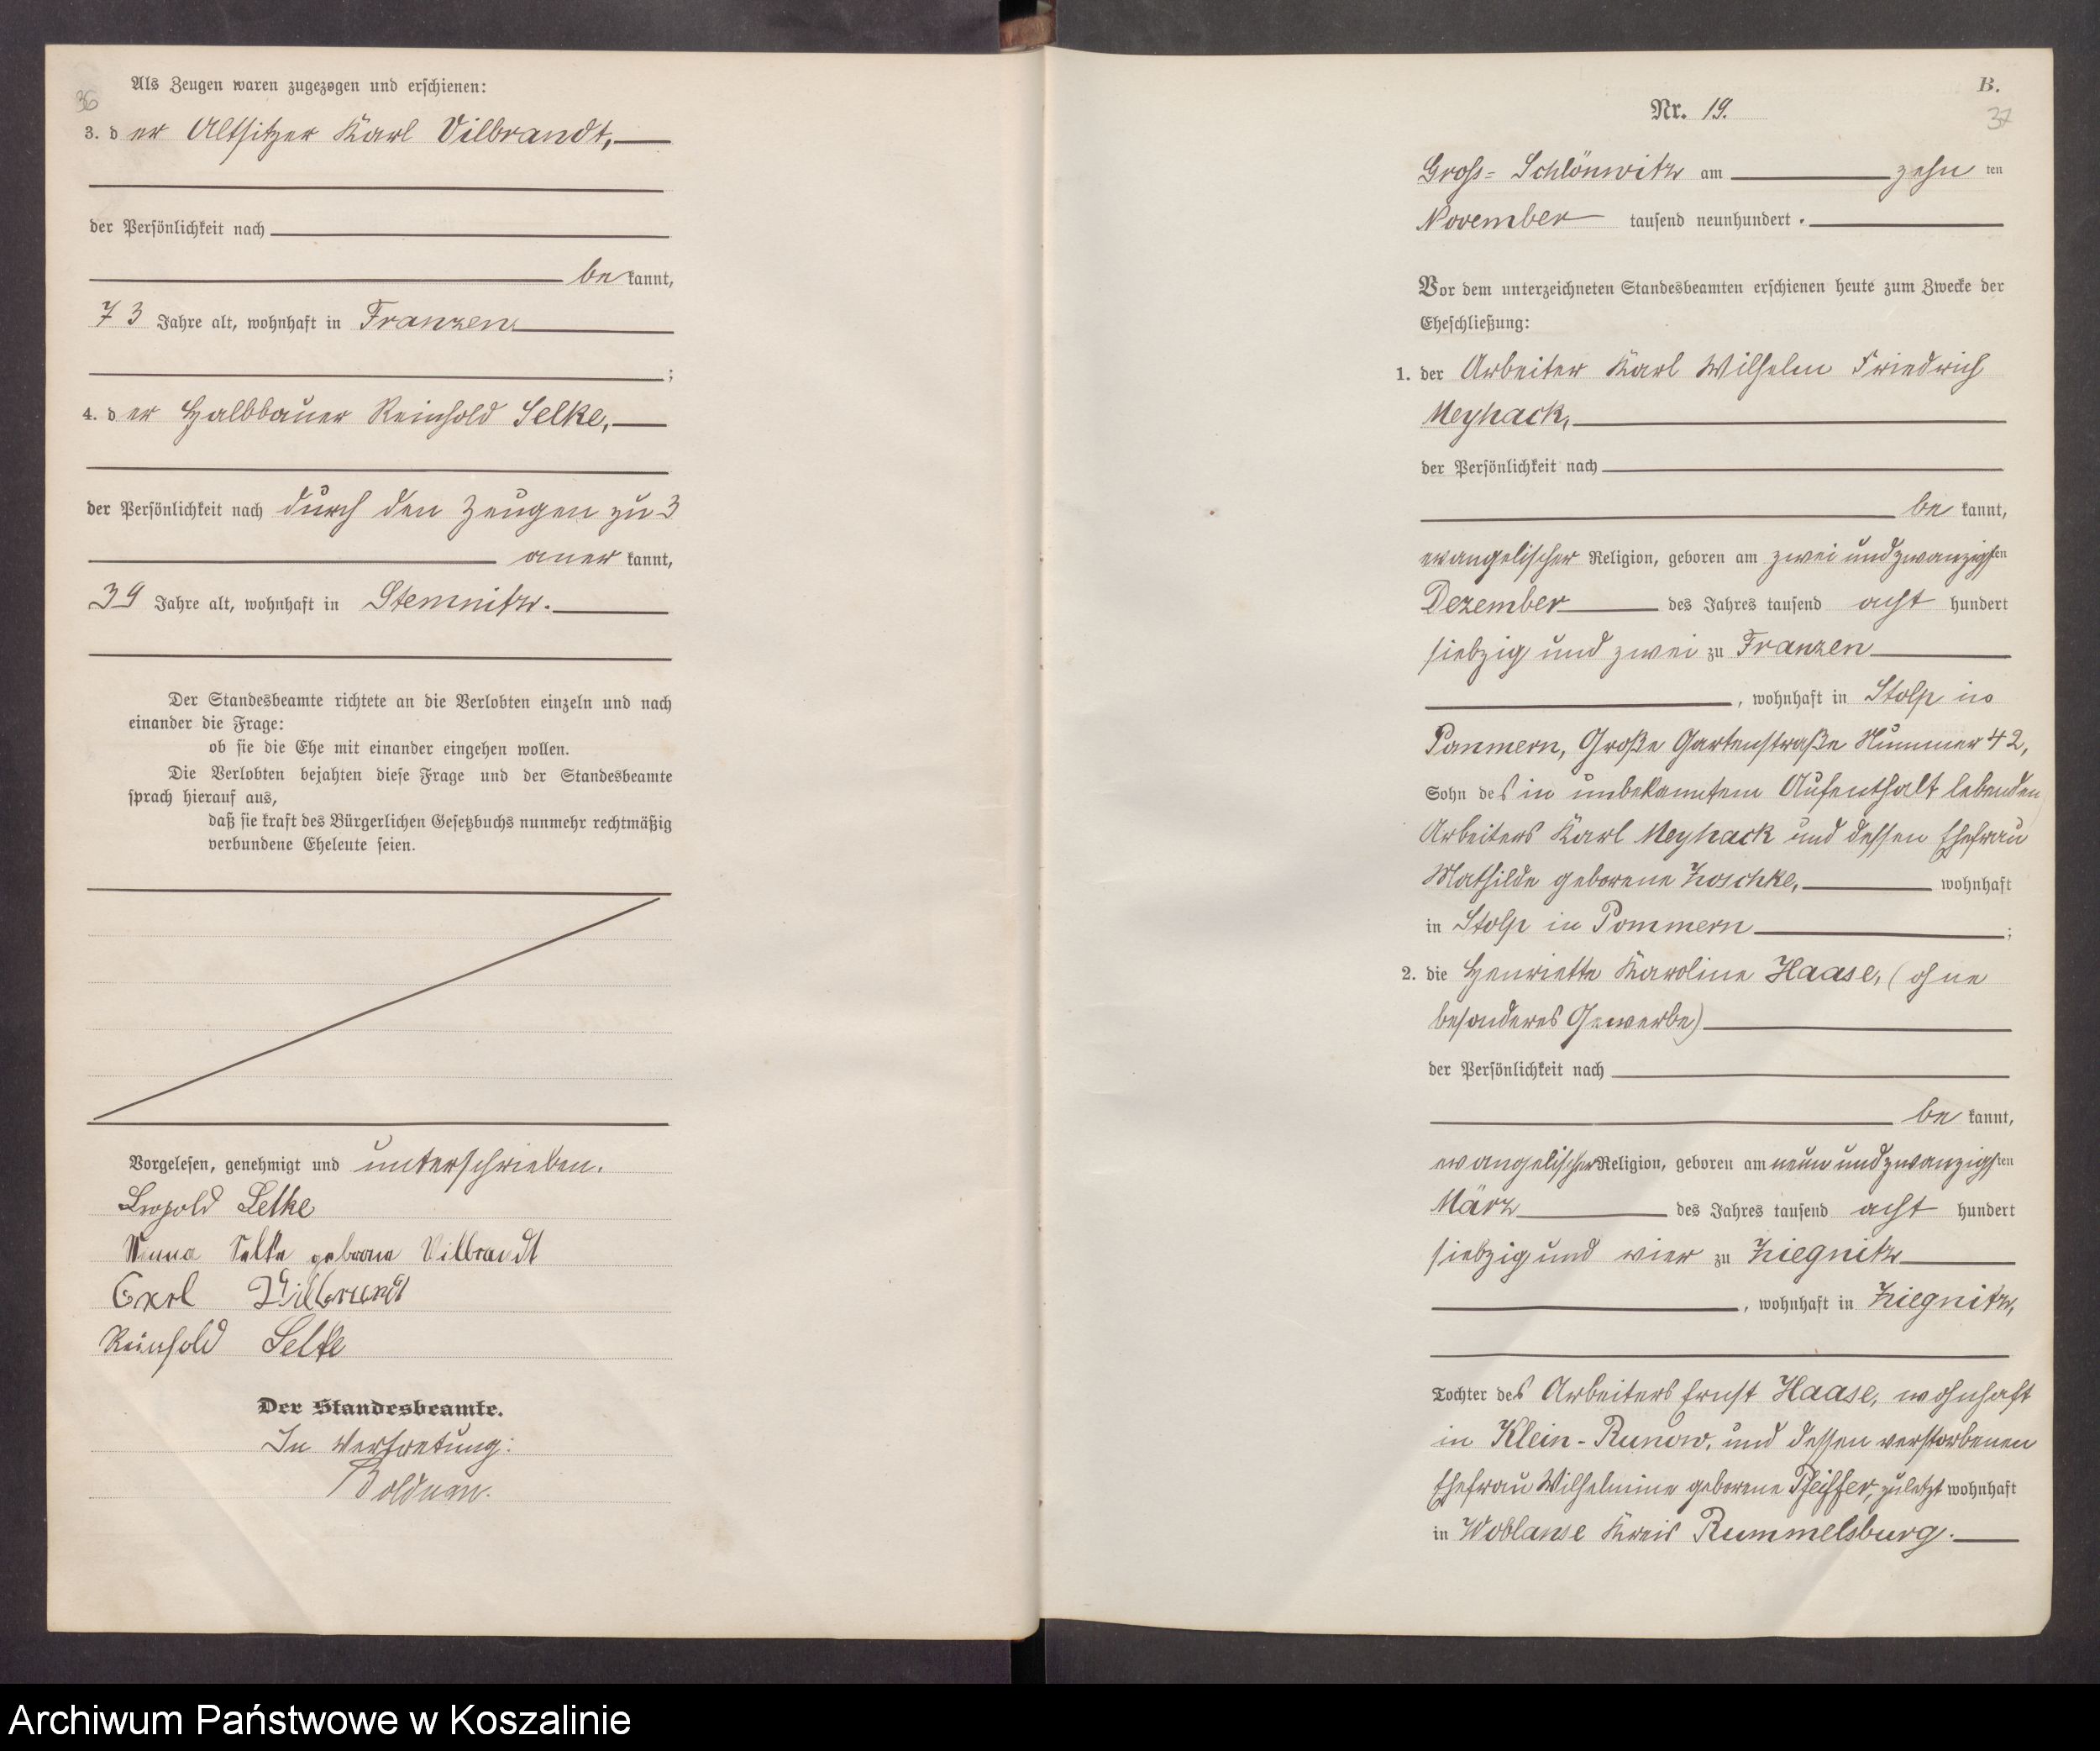 36
Als Zeugen waren zugezogen und erschienen:
3. der Altsitzer Karl Vilbrandt,
der Persönlichkeit nach
bekannt,
73 Jahre alt, wohnhaft in Franzen
;
4. der Halbbauer Reinhold Selke,
der Persönlichkeit nach durch den Zeugen zu 3
anerkannt,
39 Jahre alt, wohnhaft in Stemnitz.
Der Standesbeamte richtete an die Verlobten einzeln und nach
einander die Frage:
ob sie die Ehe mit einander eingehen wollen.
Die Verlobten bejahten diese Frage und der Standesbeamte
sprach hierauf aus,
daß sie kraft des Bürgerlichen Gesetzbuchs nunmehr rechtmäßig
verbundene Eheleute seien.
Vorgelesen, genehmigt und unterschrieben.
Leopold Selke
Selke geborene Vilbrandt
Carl Vilbrandt
Reinhold Selke
Der Standesbeamte.
In Vertretung:
Bolduan.
B.
37
Nr. 19.
Gross-Schlönwitz am zehnten
November tausend neunhundert.
Vor dem unterzeichneten Standesbeamten erschienen heute zum Zwecke der
Eheschließung:
1. der Arbeiter Karl Wilhelm Friedrich
Meyhack,
der Persönlichkeit nach
bekannt,
evangelischer Religion, geboren am zwei und zwanzigsten
Dezember des Jahres tausend acht hundert
siebzig und zwei zu Franzen
, wohnhaft in Stolp in
Pommern, Große Gartenstraße Nummer 42,
Sohn des in unbekanntem Aufenthalt lebenden
Arbeiters Karl Meyhack und dessen Ehefrau
Mathilde geborene Zoschke, wohnhaft
in Stolp in Pommern ;
2. die Henriette Karoline Haase, (ohne
besonderes Gewerbe)
der Persönlichkeit nach
bekannt,
evangelischer Religion, geboren am neun und zwanzigsten
März des Jahres tausend acht hundert
siebzig und vier zu Ziegnitz
, wohnhaft in Ziegnitz,
Tochter des Arbeiters Ernst Haase, wohnhaft
in Klein-Runow, und dessen verstorbenen
Ehefrau Wilhelmine geborene Pfeiffer, zuletzt wohnhaft
in Woblanse Kreis Rummelsburg.
Archiwum Państwowe w Koszalinie